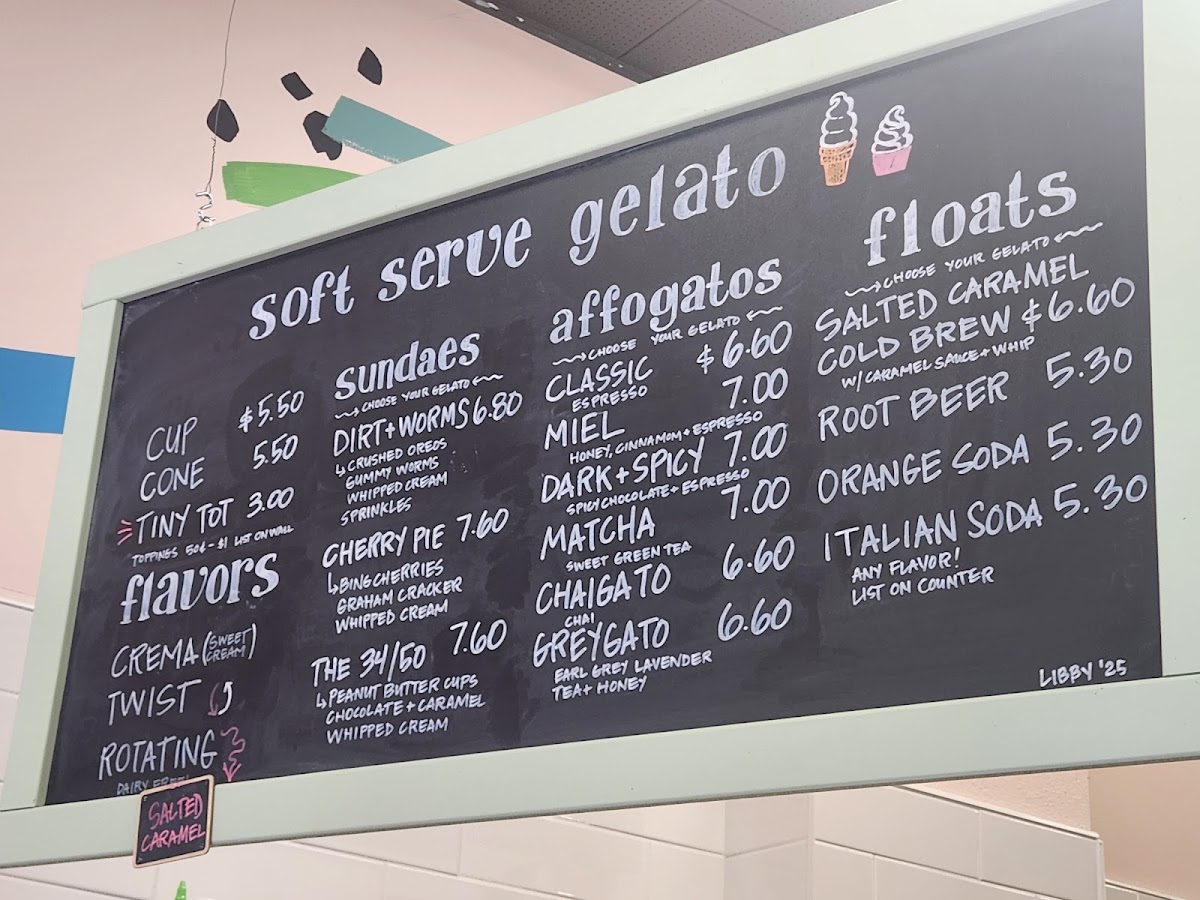 soft serve gelato
CUP $5.50
CONE 5.50
TINY TOT 3.00
TOPPINGS 50¢-$1 LIST ON WALL
flavors
CREMA (SWEET CREAM)
TWIST
ROTATING
DAIRY FREE!
SALTED
CARAMEL
sundaes
CHOOSE YOUR GELATO
DIRT+WORMS 6.80
CRUSHED OREOS
GUMMY WORMS
WHIPPED CREAM
SPRINKLES
CHERRY PIE 7.60
BING CHERRIES
GRAHAM CRACKER
WHIPPED CREAM
THE 34/50 7.60
PEANUT BUTTER CUPS
CHOCOLATE + CARAMEL
WHIPPED CREAM
affogatos
CHOOSE YOUR GELATO
CLASSIC $6.60
ESPRESSO
MIEL 7.00
HONEY, CINNAMOM + ESPRESSO
DARK+SPICY 7.00
SPICY CHOCOLATE + ESPRESSO
MATCHA 7.00
SWEET GREEN TEA
CHAIGATO 6.60
CHAI
GREYGATO 6.60
EARL GREY LAVENDER
TEA + HONEY
floats
CHOOSE YOUR GELATO
SALTED CARAMEL
COLD BREW $6.60
W/ CARAMEL SAUCE + WHIP
ROOT BEER 5.30
ORANGE SODA 5.30
ITALIAN SODA 5.30
ANY FLAVOR!
LIST ON COUNTER
LIBBY '25